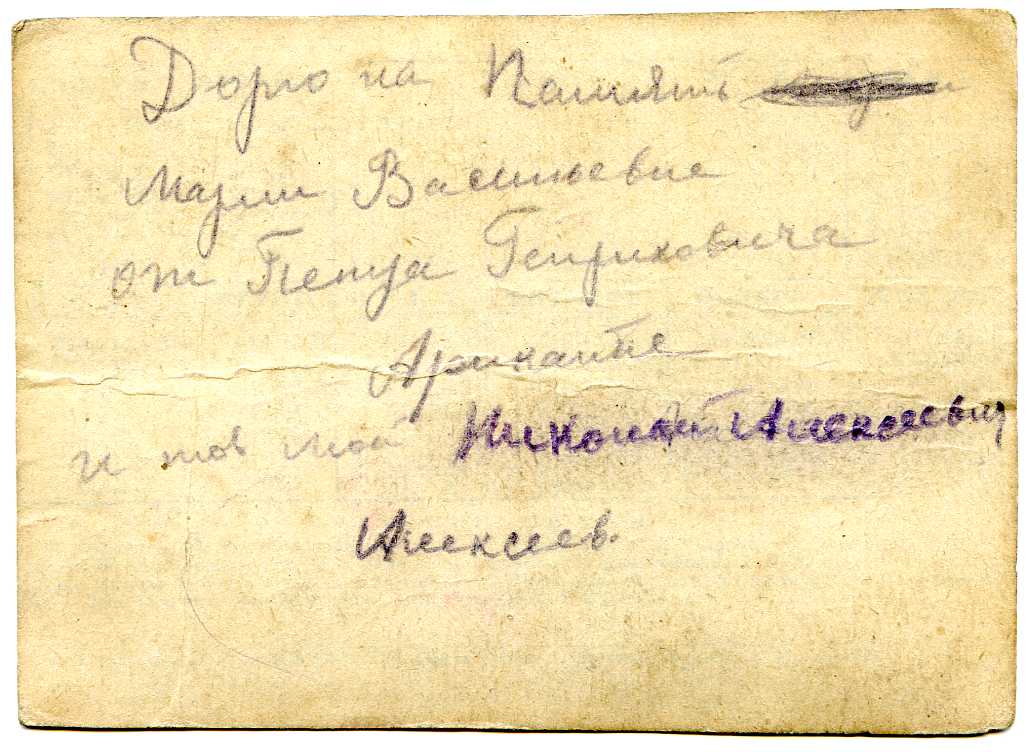 Дорю на Память
Марии Васильевне
от Петра Генриховича
и тов мой Николай Алексеевич
Алексеев.